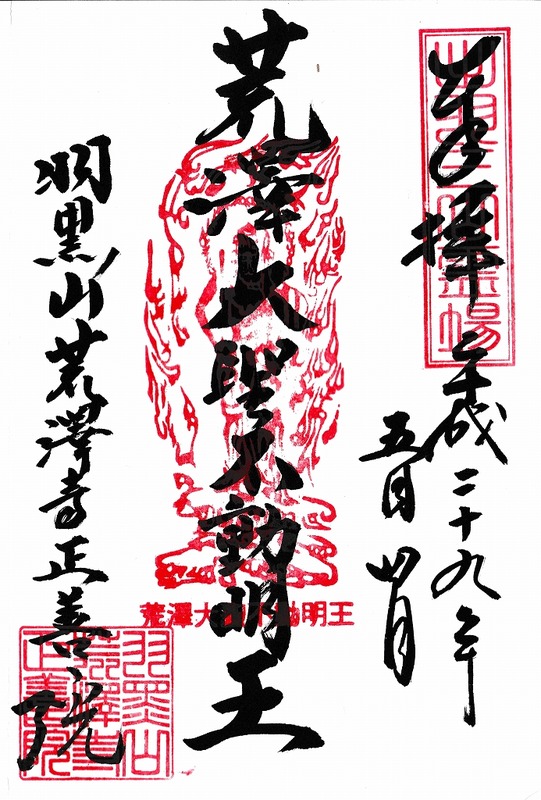 奉拝
平成二十九年
五月四日
荒澤大聖不動明王
荒澤大聖不動明王
羽黒山荒澤寺正善院
羽黒山
荒澤寺
正善院